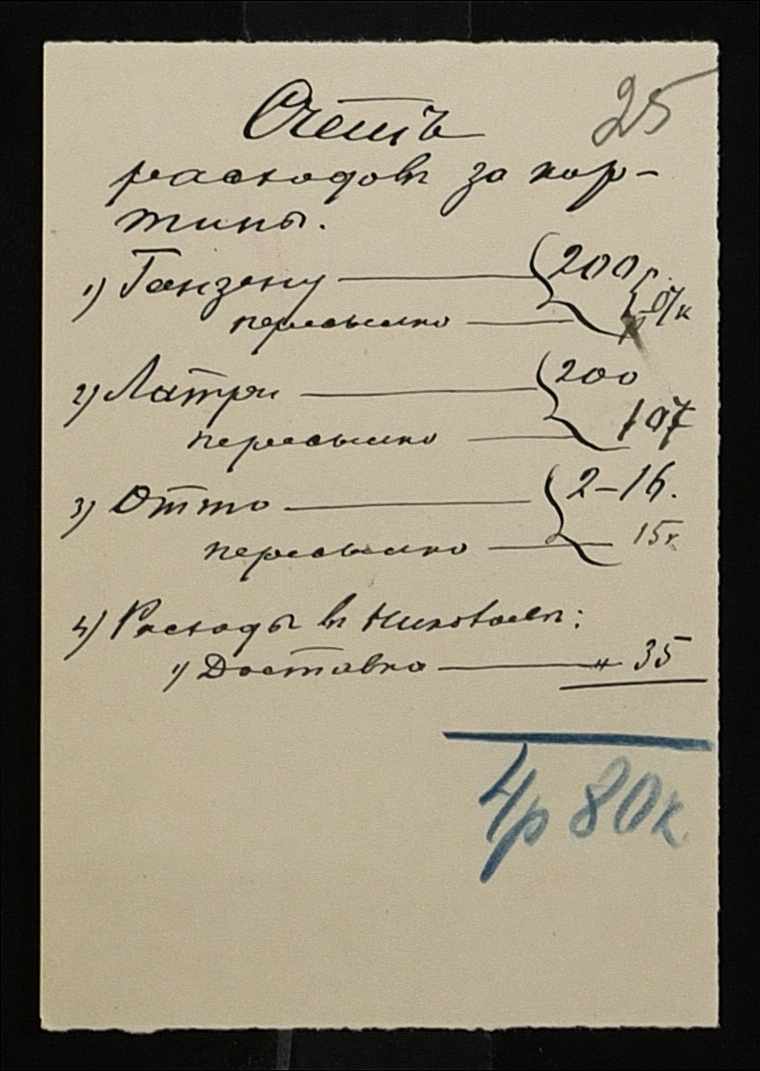 25
Счетъ
расходовъ за кар-
тины.
1) Ганзену — 200 р.
пересылка —
2) Латри — 200
пересылка — 107
3) Отто — 2-16.
пересылка — 15к
4) Расходы въ Николаевѣ:
1) Доставка — " 35
4р 80к.